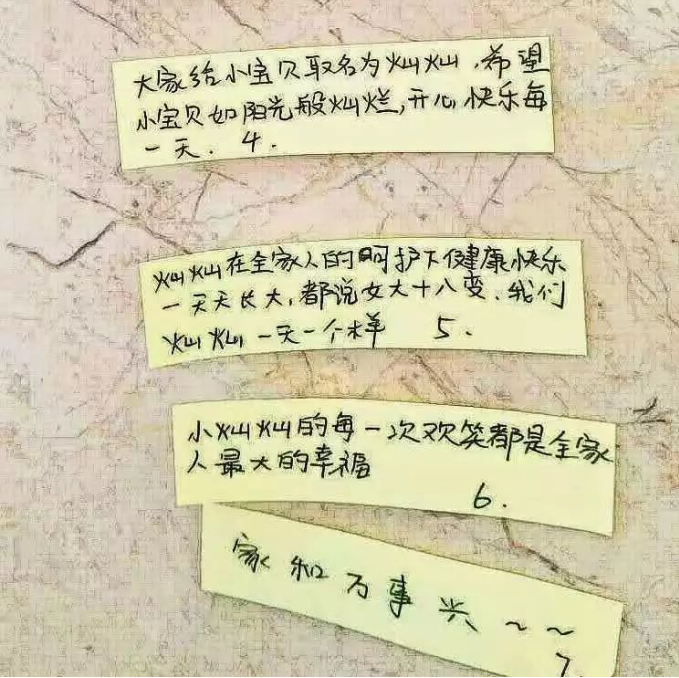 大家给小宝贝取名为灿灿，希望
小宝贝如阳光般灿烂,开心快乐每
一天. 4.
灿灿在全家人的呵护下健康快乐
一天天长大,都说女大十八变、我们
灿灿一天一个样 5.
小灿灿的每一次欢笑都是全家
人最大的幸福
6.
家和万事兴~~
7.